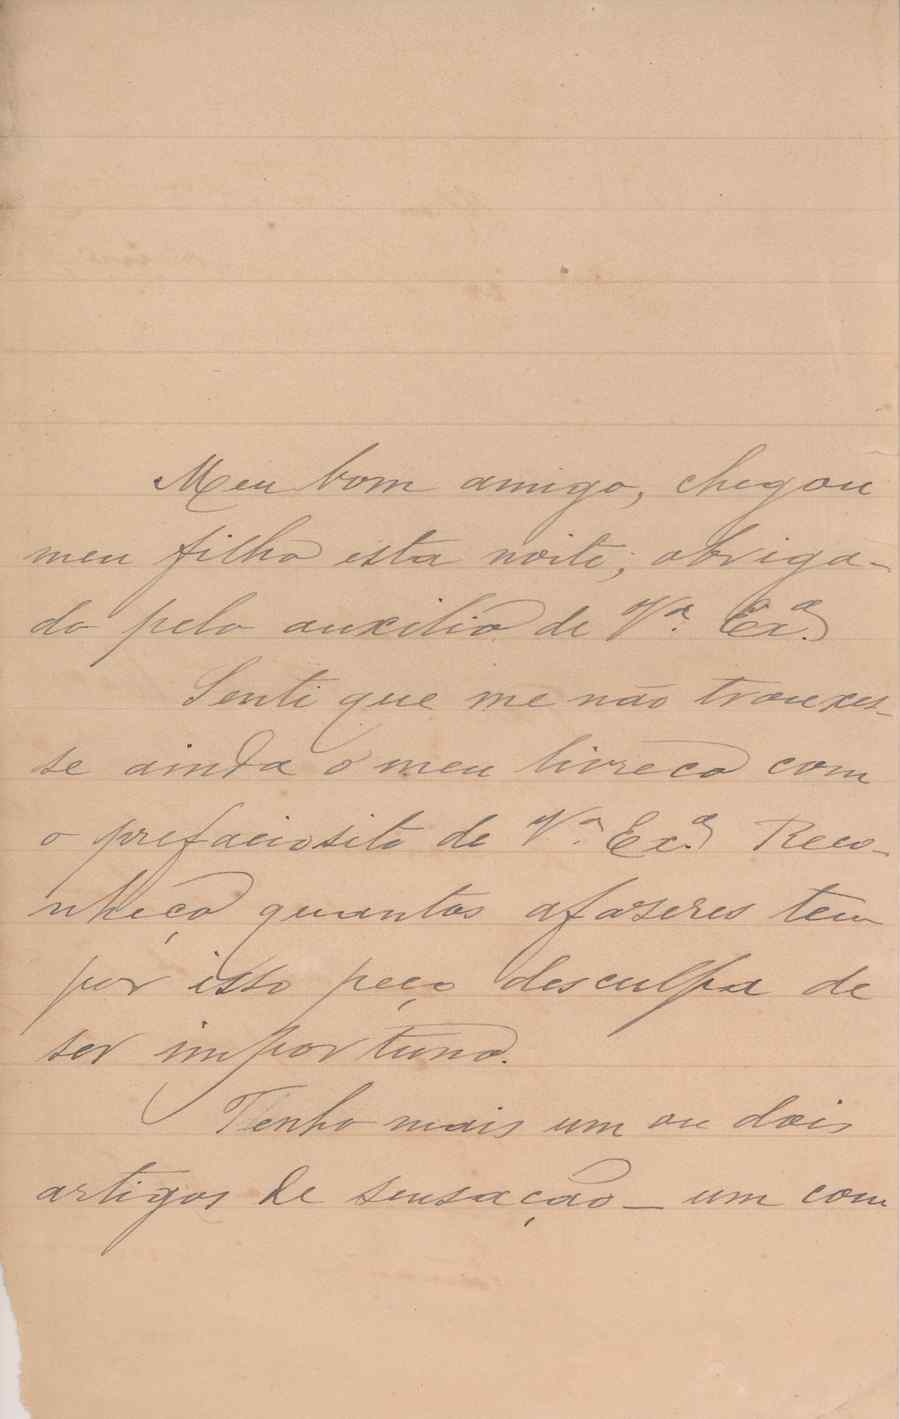 Meu bom amigo, chegou
meu filho esta noite; obriga-
do pelo auxilio de Vª. Exª.
Senti que me não trouxes-
se ainda o meu livreco com
o prefaciosito de Vª. Exª. Reco-
nheço quantos afazeres tem
por isso peço desculpa de
ser importuno.
Tenho mais um ou dois
artigos de sensação — um com